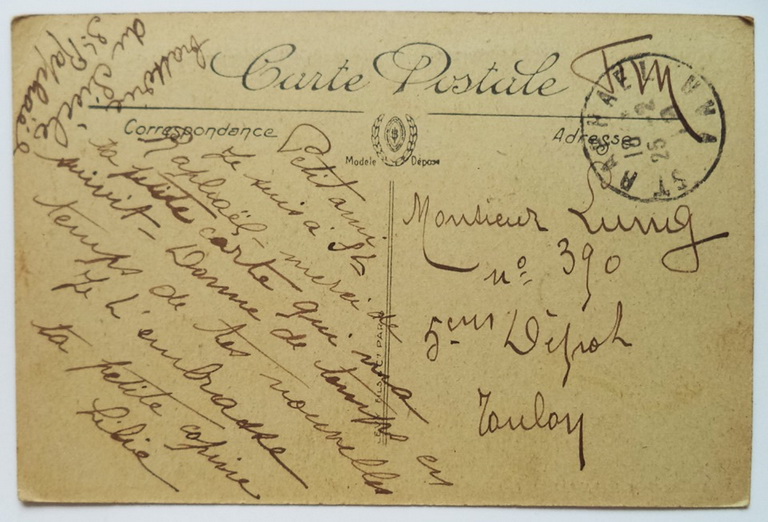 Carte Postale
FM
ST RAPHAEL
18-2
25
Correspondance
Adresse
Modèle Déposé
Petit ami
Je suis à St
Raphaël, merci de
ta petite carte qui m'a
suivit - Donne de temps en
temps de tes nouvelles
Je t'embrasse
ta petite copine
Lilie
du Siècle
St Raphaël
Monsieur Lunig
n° 390
5ème Dépôt
Toulon